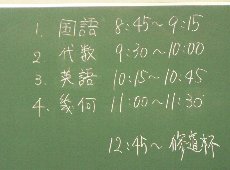 1. 国語 8:45~9:15
2 代数 9:30~10:00
3. 英語 10:15~10:45
4. 幾何 11:00~11:30
12:45~ 修道杯